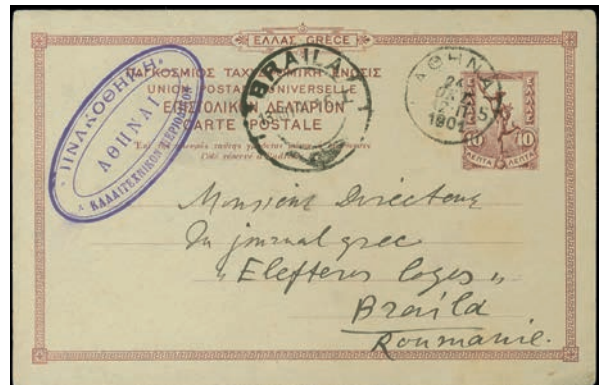 ΕΛΛΑΣ GRECE
ΠΑΓΚΟΣΜΙΟΣ ΤΑΧΥΔΡΟΜΙΚΗ ΕΝΩΣΙΣ
UNION POSTALE UNIVERSELLE
ΕΠΙΣΤΟΛΙΚΟΝ ΔΕΛΤΑΡΙΟΝ
CARTE POSTALE
Côté réservé à
ΠΙΝΑΚΟΘΗΚΗ
ΑΘΗΝΑΙ
ΚΑΛΛΙΤΕΧΝΙΚΟΝ ΠΕΡΙΟΔΙΚΟΝ
BRAILA
ΑΘΗΝΑΙ
1901
ΕΛΛΑΣ
10 10
ΛΕΠΤΑ ΛΕΠΤΑ
Monsieur Directeur
Du journal grec
"Elefteros Logos"
Braïla
Roumanie.